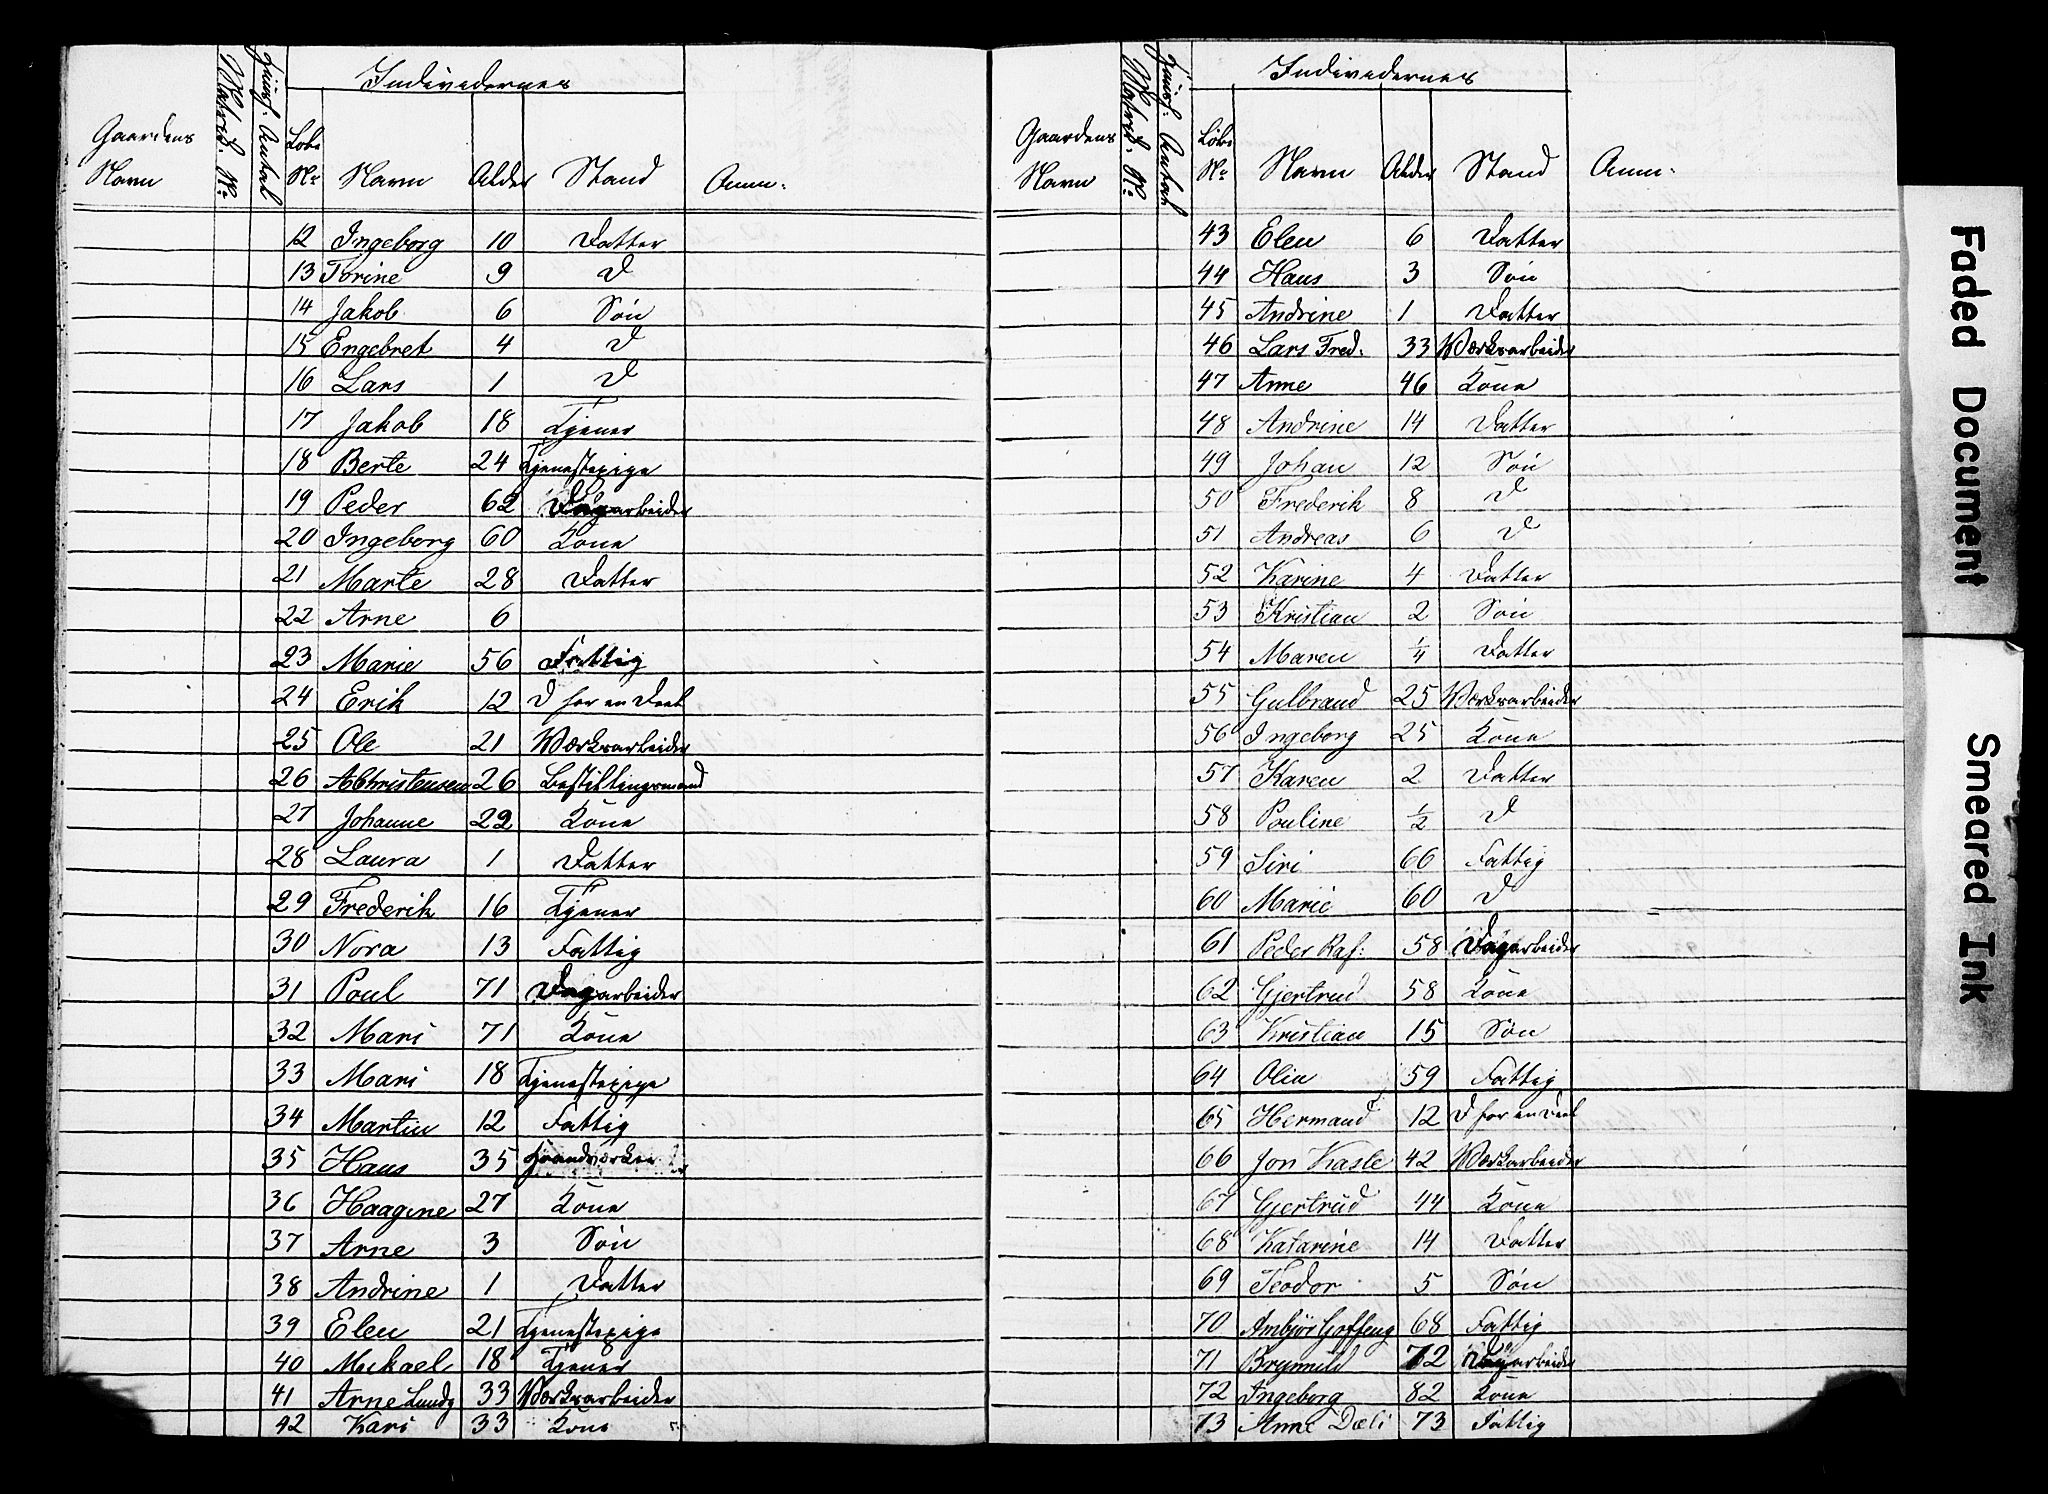 Gaardens Navn Matrik. Nr Huusf. Antal Individernes
Løbe Nr Navn Alder Stand Anm:
12 Ingeborg 10 Datter
13 Torine 9 D
14 Jakob 6 Søn
15 Engebret 4 D
16 Lars 1 D
17 Jakob 18 Tjener
18 Berte 24 Tjenestepige
19 Peder 62 Dagarbeider
20 Ingeborg 60 Kone
21 Marte 28 Datter
22 Arne 6
23 Marie 56 Fattig
24 Erik 12 D for en Deel
25 Ole 21 Værksarbeider
26 AChristensen 26 Bestillingsmand
27 Johanne 22 Kone
28 Laura 1 Datter
29 Frederik 16 Tjener
30 Nora 13 Fattig
31 Poul 71 Dagarbeider
32 Mari 71 Kone
33 Mari 18 Tjenestepige
34 Martin 12 Fattig
35 Hans 35 Haandværker
36 Haagine 27 Kone
37 Arne 3 Søn
38 Andrine 1 Datter
39 Elen 21 Tjenestepige
40 Mikael 18 Tjener
41 Arne Lundg 33 Værksarbeider
42 Kari 33 Kone
Gaardens Navn Matrik. Nr Huusf. Antal Individernes
Løbe Nr Navn Alder Stand Anm:
43 Elen 6 Datter
44 Hans 3 Søn
45 Andrine 1 Datter
46 Lars Fred. 33 Værksarbeider
47 Anne 46 Kone
48 Andrine 14 Datter
49 Johan 12 Søn
50 Frederik 8 D
51 Andreas 6 D
52 Karine 4 Datter
53 Kristian 2 Søn
54 Maren 1/4 Datter
55 Gulbrand 25 Værksarbeider
56 Ingeborg 25 Kone
57 Karen 2 Datter
58 Pouline 1/2 D
59 Siri 66 Fattig
60 Marie 60 D
61 Peder Raf: 58 Dagarbeider
62 Gjertrud 58 Kone
63 Kristian 15 Søn
64 Olia 59 Fattig
65 Hermand 12 D for en Deel
66 Jon Kasle 42 Værksarbeider
67 Gjertrud 44 Kone
68 Katarine 14 Datter
69 Teodor 5 Søn
70 Ambjør Goffeng 68 Fattig
71 Brynild 72 Dagarbeider
72 Ingeborg 82 Kone
73 Anne Dæli 73 Fattig
Faded Document
Smeared Ink